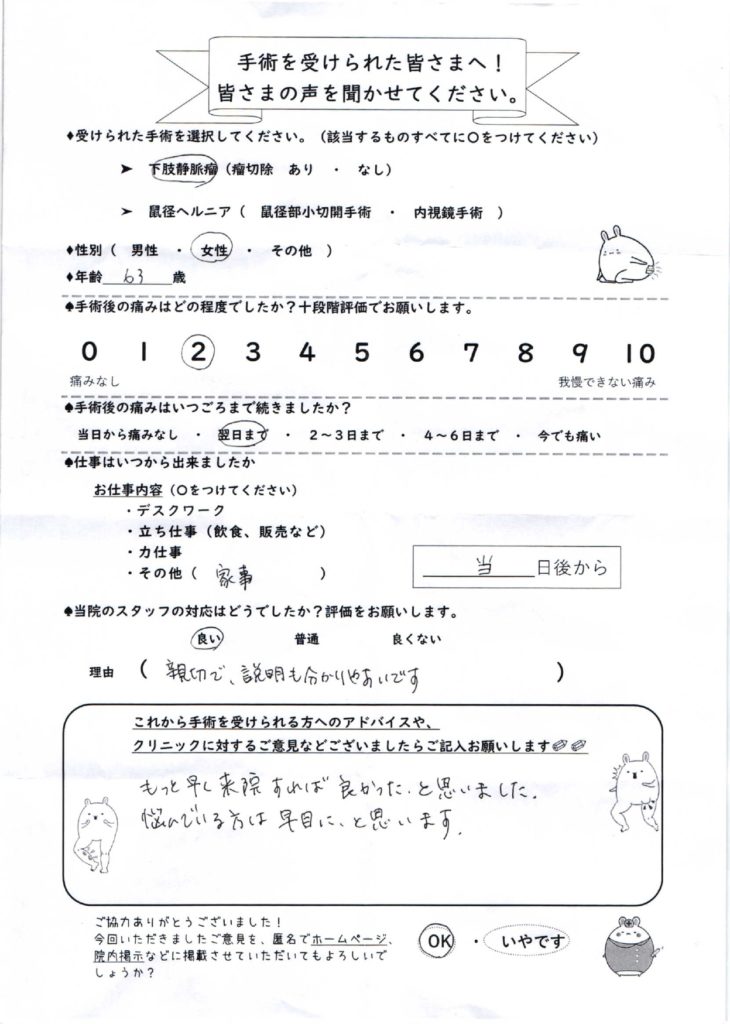 手術を受けられた皆さまへ！
皆さまの声を聞かせてください。
♦受けられた手術を選択してください。（該当するものすべてに〇をつけてください）
➤ 下肢静脈瘤（瘤切除　あり　・　なし）
➤ 鼠径ヘルニア（　鼠径部小切開手術　・　内視鏡手術　）
♦性別（　男性　・　女性　・　その他　）
♦年齢　63　歳
♠手術後の痛みはどの程度でしたか？十段階評価でお願いします。
0 1 2 3 4 5 6 7 8 9 10
痛みなし　我慢できない痛み
♠手術後の痛みはいつごろまで続きましたか？
当日から痛みなし　・　翌日まで　・　２～３日まで　・　４～６日まで　・　今でも痛い
♠仕事はいつから出来ましたか
お仕事内容（〇をつけてください）
・デスクワーク
・立ち仕事（飲食、販売など）
・力仕事
・その他（　家事　）
当　日後から
♠当院のスタッフの対応はどうでしたか？評価をお願いします。
良い　普通　良くない
理由　（　親切で、説明も分かりやすいです　）
これから手術を受けられる方へのアドバイスや、
クリニックに対するご意見などございましたらご記入お願いします
もっと早く来院すれば良かった、と思いました。
悩んでいる方は早目に、と思います。
ご協力ありがとうございました！
今回いただきましたご意見を、匿名でホームページ、
院内掲示などに掲載させていただいてもよろしいで
しょうか？
OK　・　いやです